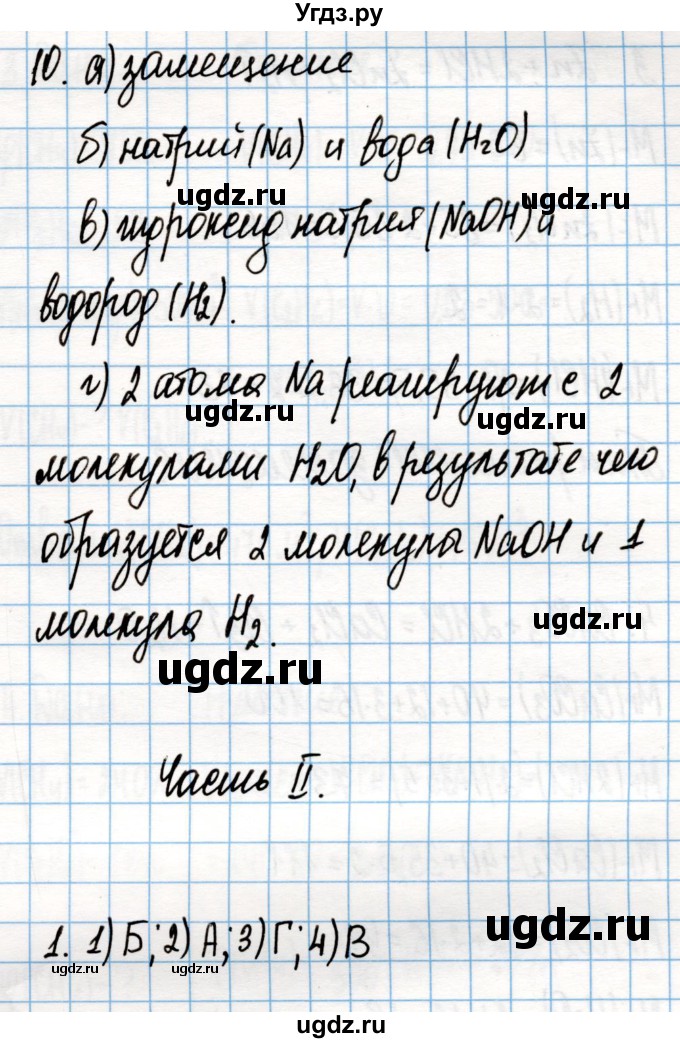 Угдз.ру
10. а) замещение
б) натрий (Na) и вода (H₂O)
ugdz.ru ugdz.ru
в) гидроксид натрия (NaOH) и
водород (H₂).
ugdz.ru
г) 2 атома Na реагируют с 2
ugdz.ru ugdz.ru
молекулами H₂O, в результате чего
образуется 2 молекулы NaOH и 1
молекула H₂.
ugdz.ru
ugdz.ru
Часть II.
1. 1) Б; 2) А; 3) Г; 4) В
ugdz.ru
ugdz.ru ugdz.ru
ugdz.ru